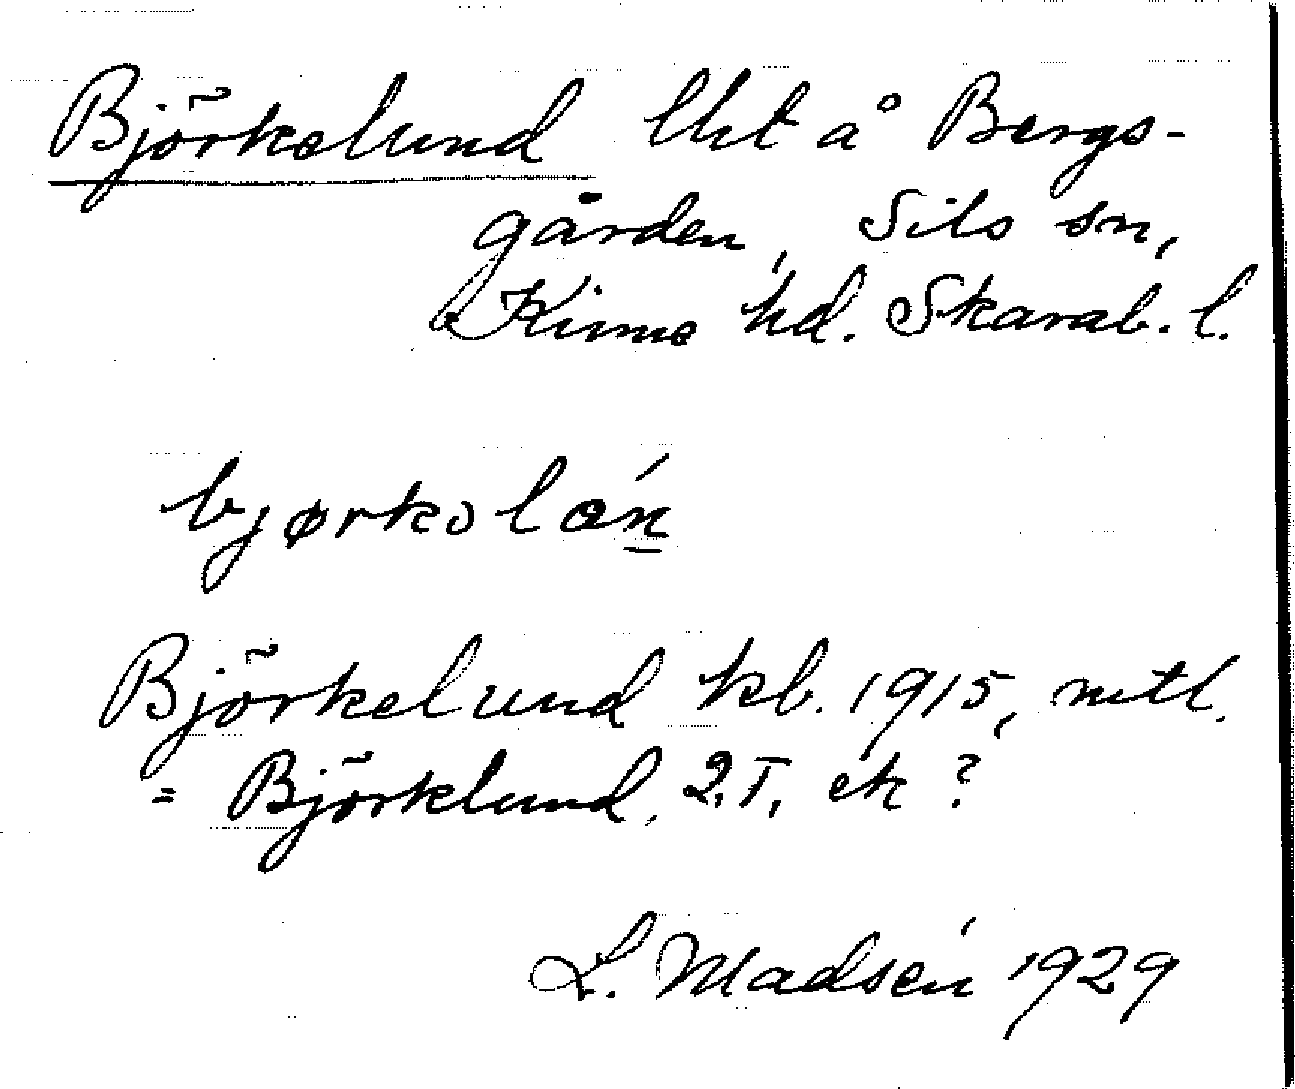 Björkelund lht å Bergs-
gården, Sils sn,
Kinne hd. Skarab. l.
bjørkolán
Björkelund kb. 1915, mtl.
= Björklund, 2.I, ek ?
L. Madsén 1929